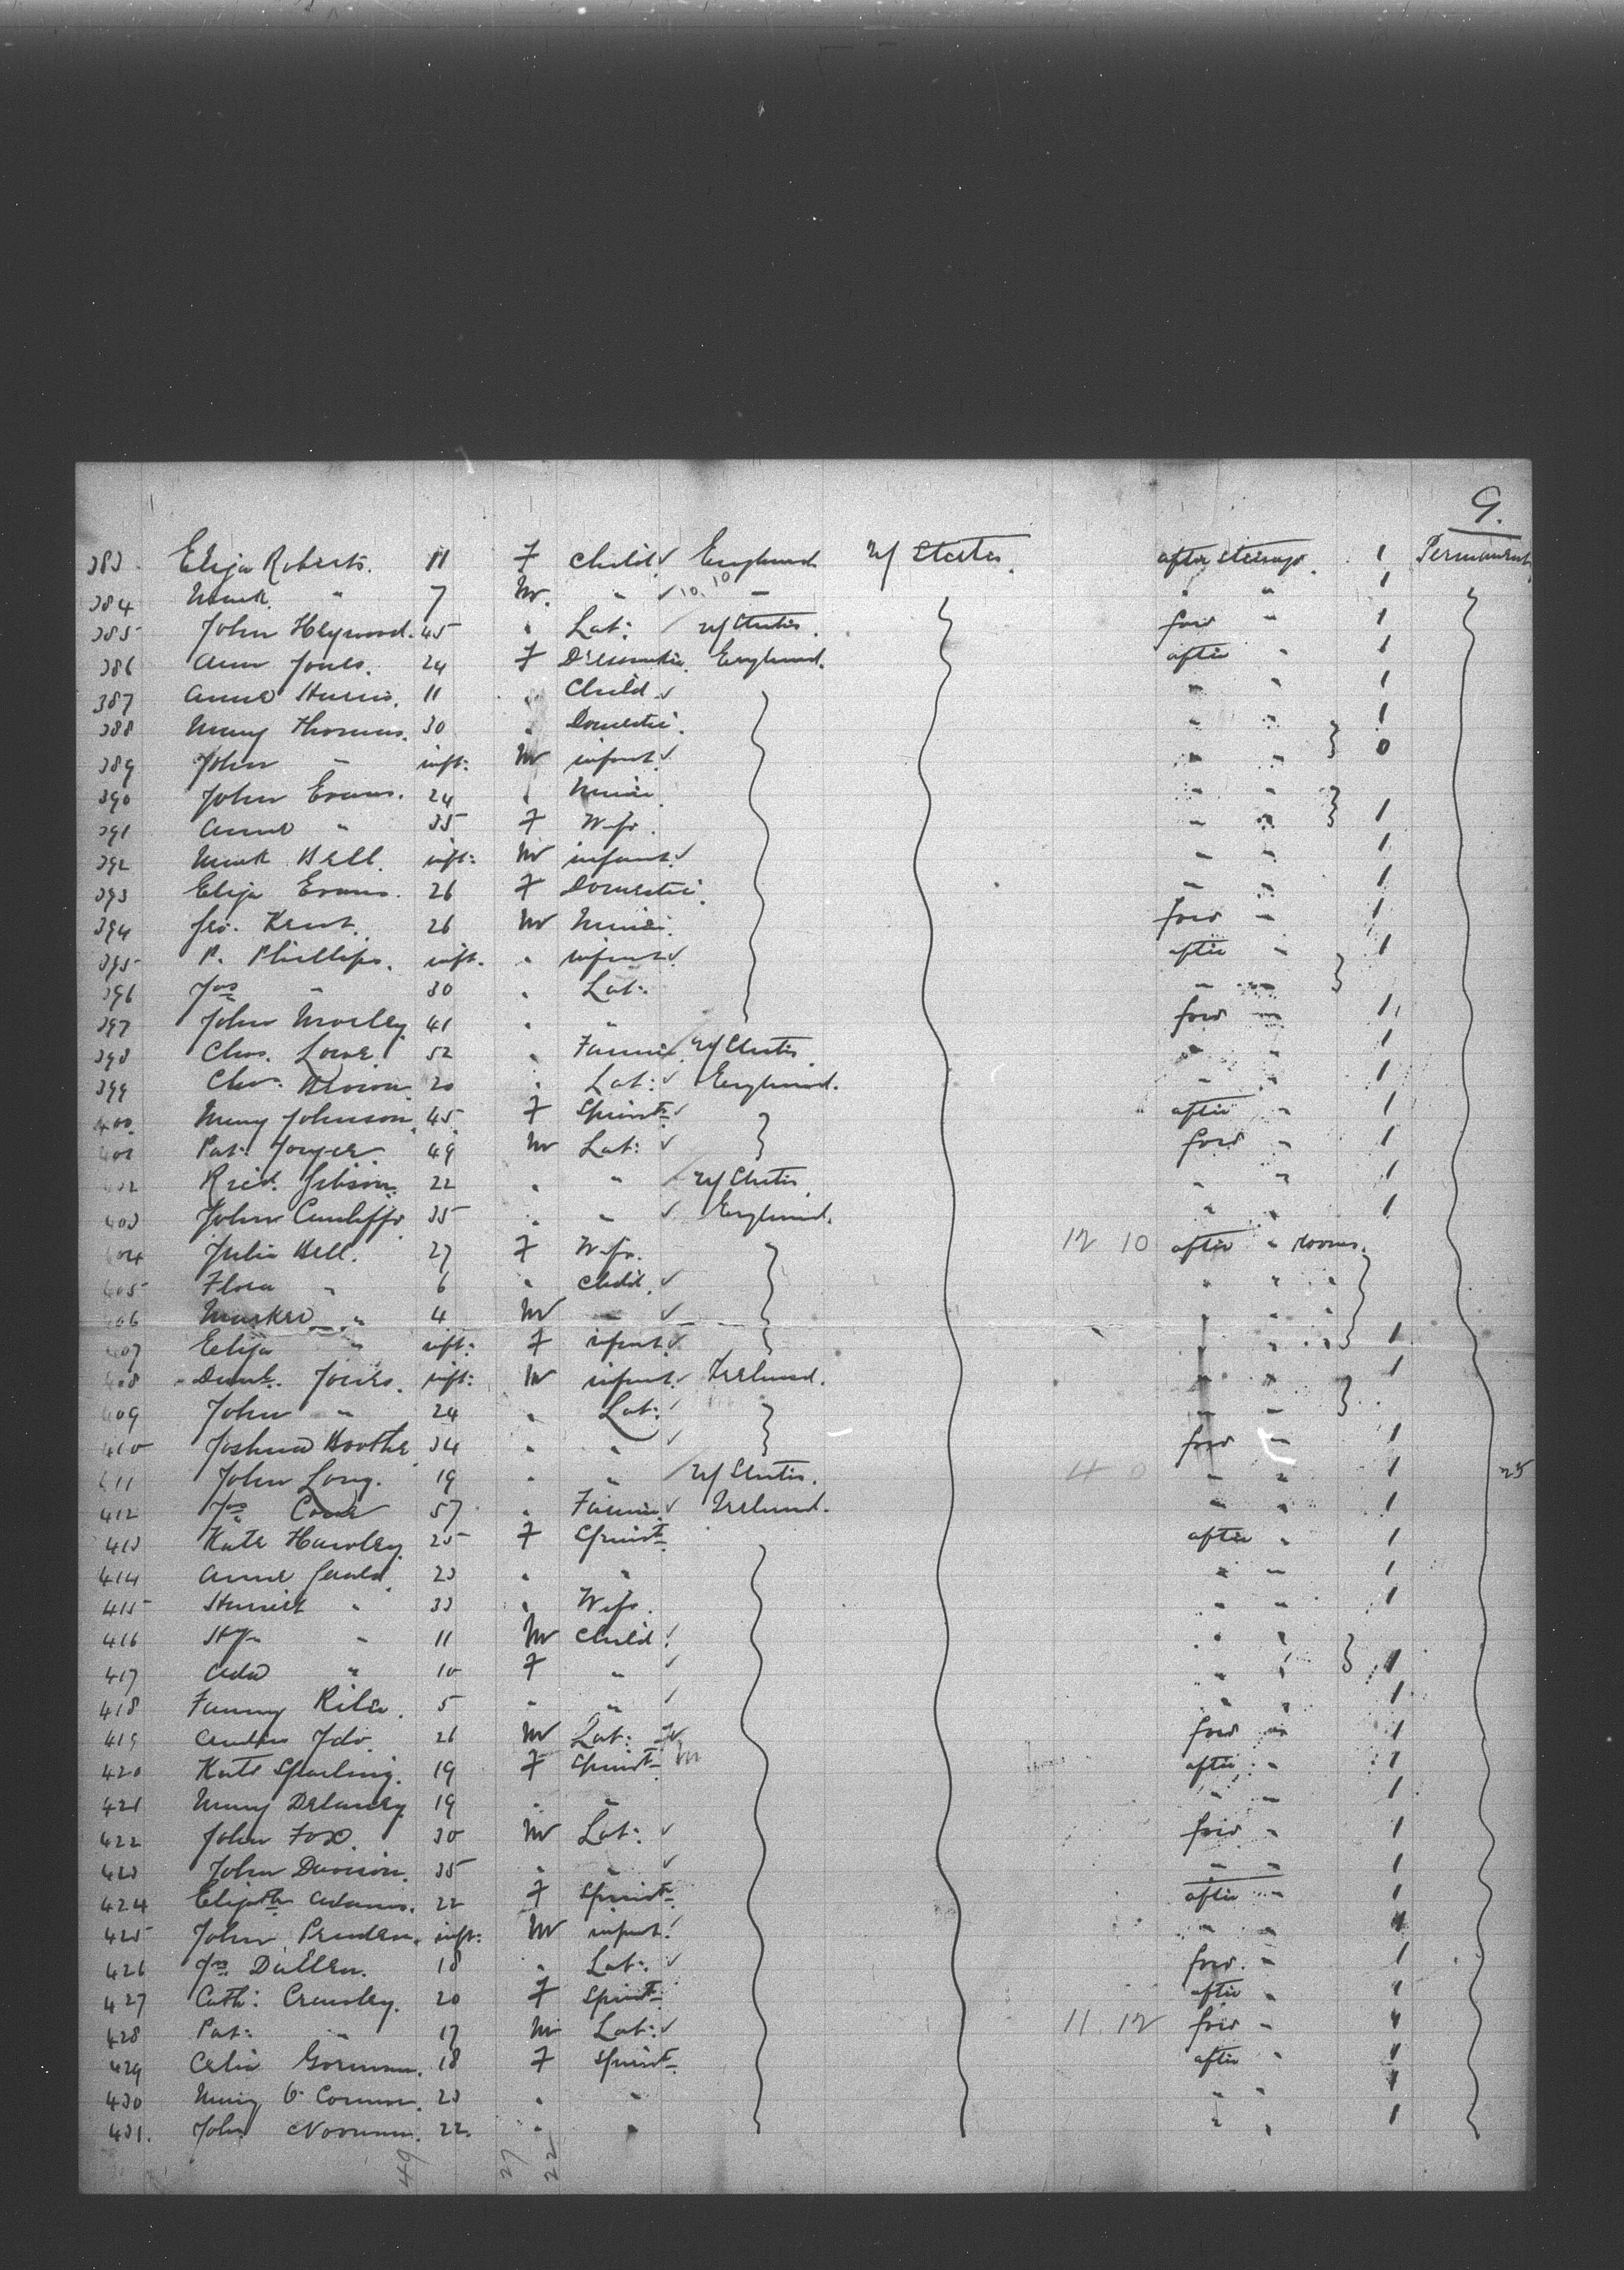 9.
383. Eliza Roberts. 11 F Child ✓ England U/ States. after steerage. 1 Permanent
384 Mark " 7 M. " ✓ 10.10 — " " 1
385 John Heywood. 45 " Lab: / U/ States. ford " 1
386 Ann Jones. 24 F Dressmaker. England. after " 1
387 Anne Harris. 11 " Child ✓ " " 1
388 Mary Thomas. 30 " Domestic. " " } 1
389 John " inft: M infant ✓ " " } 0
390 John Evans. 24 " Miner " " }
391 Anne " 35 F Wife. " " } 1
392 Mark Bell. inft: M infant ✓ " " 1
393 Eliza Evans. 26 F Domestic. " " 1
394 Geo. Kent. 26 M Miner. ford " 1
395 P. Phillips. inft. " infant ✓ after " 1
396 Jas " 30 " Lab: " " }
397 John Morley 41 " " ford " 1
398 Chas. Lowe 52 " Farmer / U/ States " " 1
399 Chas. Brown 20 " Lab: ✓ England. " " 1
400. Mary Johnson. 45. F Spinstr ✓ after " 1
401 Pat: 49 M Lab: ✓ ford " 1
402 Ricd. Gibson. 22 " " / U/ States " " 1
403 John Cunliffe 35 " " ✓ England. " " 1
404 Julia Bell. 27 F Wife. 12 10 after " rooms.
405 Flora " 6 " Child. ✓ " " "
406 " 4 M " ✓ " " "
407 Eliza " inft: F infant ✓ " " " } 1
408 Jones. inft: M infant ✓ Ireland. " " 1
409 John " 24 " Lab: ✓ " " }
410 Joshua Boothe 34 " " ✓ ford " 1
411 John Long. 19 " " / U/ States. 4 0 " " 1 25
412 Jas 57 " Farmer ✓ Ireland. " " 1
413 Kate Hawley. 25 F Spinstr after " 1
414 Anne 23 " " " " 1
415 Harriet " 33 " Wife. " " 1
416 Hy " 11 M Child ✓ " "
417 Ada " 10 F " ✓ " " } 1
418 Fanny Riley. 5 " " ✓ " " 1
419 26 M Lab: ford " 1
420 Kate Sparling. 19 F Spinstr after " 1
421 Mary Delaney 19 " " " " 1
422 John Fox. 30 M Lab: ✓ ford " 1
423 John Davison. 35 " " ✓ " " 1
424 Elizath Adams. 22 F Spinstr after " 1
425 John inft: M infant ✓ " " 1
426 Jas 18 " Lab: ✓ ford. " 1
427 Cath: Crawley. 20 F Spinstr after " 1
428 Pat: " 17 M Lab: ✓ 11. 12 ford " 1
429 Celia Gorman. 18 F Spinstr after " 1
430 Mary O'Connor. 23 " " " " 1
431. John Noonan. 22. " " " " 1
49 27 22